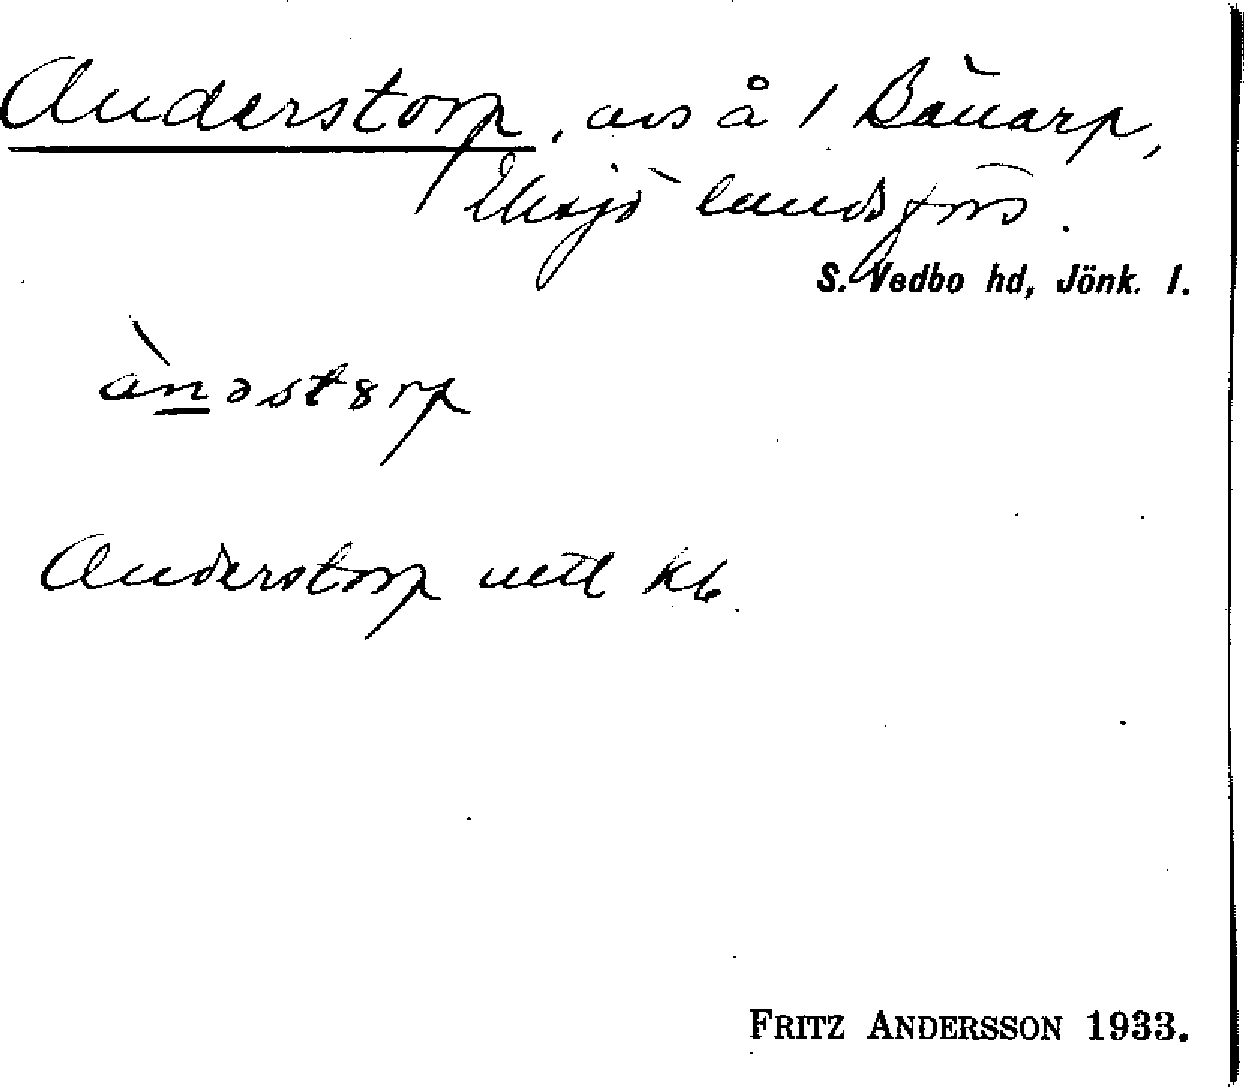 Anderstorp, avs å 1 Bänarp,
Eksjö landsförs.
S. Vedbo hd, Jönk. l.
ànəstərp
Anderstorp uttl kb
FRITZ ANDERSSON 1933.